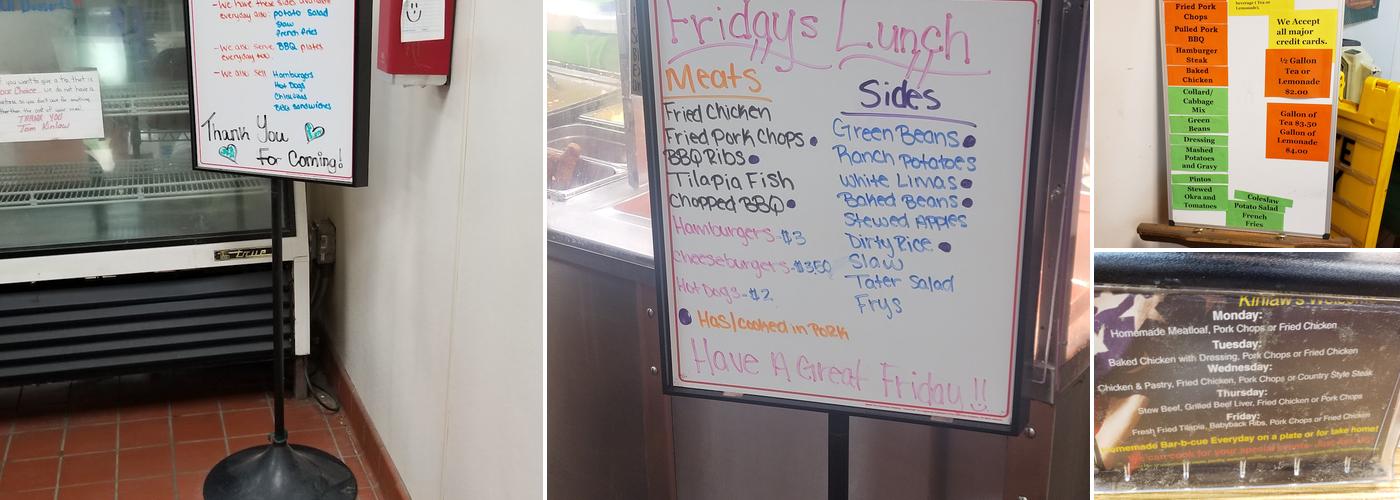 - We have these sides available
everyday also: potato Salad
Slaw
french fries
- We also serve BBQ plates
everyday too.
- We also sell Hamburgers
Hot Dogs
Chilis
BBQ Sandwiches
Thank You
For Coming!
if you want to give a tip, that is
your Choice. we do not have
THANK YOU
Tom Kinlaw
True
Fridays Lunch
Meats
Fried Chicken
Fried Pork Chops
BBQ Ribs
Tilapia Fish
Chopped BBQ
Hamburgers-$3
cheeseburgers-$3.50
Hot Dogs-$2
Sides
Green Beans
Ranch Potatoes
White Limas
Baked Beans
Stewed Apples
Dirty Rice
Slaw
Tater Salad
Frys
Has/cooked in PORK
Have A Great Friday!!
Fried Pork
Chops
Pulled Pork
BBQ
Hamburger
Steak
Baked
Chicken
Collard/
Cabbage
Mix
Green
Beans
Dressing
Mashed
Potatoes
and Gravy
Pintos
Stewed
Okra and
Tomatoes
beverage ( Tea or
Lemonade).
We Accept
all major
credit cards.
½ Gallon
Tea or
Lemonade
$2.00
Gallon of
Tea $3.50
Gallon of
Lemonade
$4.00
Coleslaw
Potato Salad
French
Fries
Kinlaw's Welcome
Monday:
Homemade Meatloaf, Pork Chops or Fried Chicken
Tuesday:
Baked Chicken with Dressing, Pork Chops or Fried Chicken
Wednesday:
Chicken & Pastry, Fried Chicken, Pork Chops or Country Style Steak
Thursday:
Stew Beef, Grilled Beef Liver, Fried Chicken or Pork Chops
Friday:
Fresh Fried Tilapia, Babyback Ribs, Pork Chops or Fried Chicken
omemade Bar-b-cue Everyday on a plate or for take home!
can cook for your special